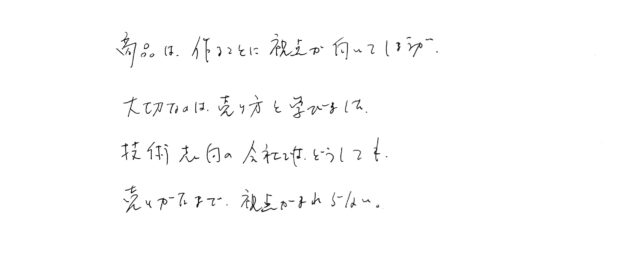 商品は、作ることに視点が向いてしまうが、
大切なのは、売り方と学びました。
技術志向の会社では、どうしても、
売りかたまで、視点がまわらない。